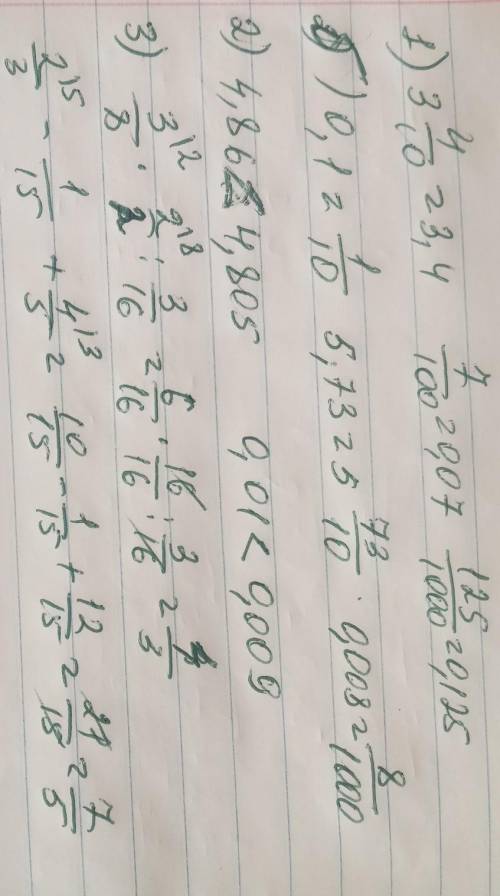 1) 3 4/10 = 3,4 7/100 = 0,07 125/1000 = 0,125
б) 0,1 = 1/10 5,73 = 5 73/10 . 0,008 = 8/1000
2) 4,86 < 4,805 0,01 < 0,009
3) 3/8 · 2/2 : 3/16 = 6/16 · 16/16 · 3/16 = 2/3
2/3 - 1/15 + 4/5 = 10/15 - 1/15 + 12/15 = 21/15 = 7/5